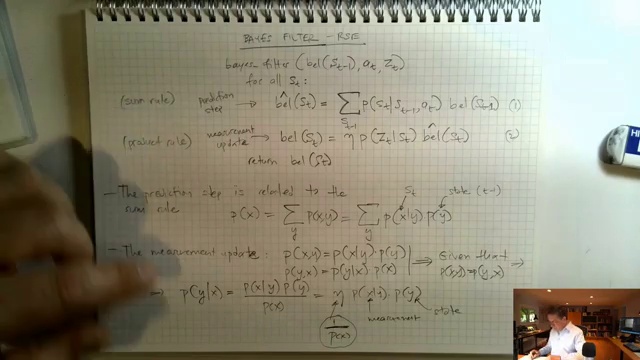 BAYES FILTER - RSE
bayes-filter (bel(S_{t-1}), a_t, Z_t)
for all S_t:
(sum rule) prediction step → bel̂(S_t) = ∑_{S_{t-1}} p(S_t|S_{t-1}, a_t) bel(S_{t-1}) (1)
(product rule) measurement update → bel(S_t) = η p(Z_t|S_t) bel̂(S_t) (2)
return bel(S_t)
S_t state (t-1)
- The prediction step is related to the
sum rule p(x) = ∑_y p(x,y) = ∑_y p(x|y) p(y)
- The measurement update: p(x,y) = p(x|y) · p(y)
p(y,x) = p(y|x) p(x) ⟹ Given that
p(x,y) = p(y,x) ⟹
⟹ p(y|x) = p(x|y) p(y) / p(x) = η p(x|y) · p(y)
1/p(x) measurement state
HI